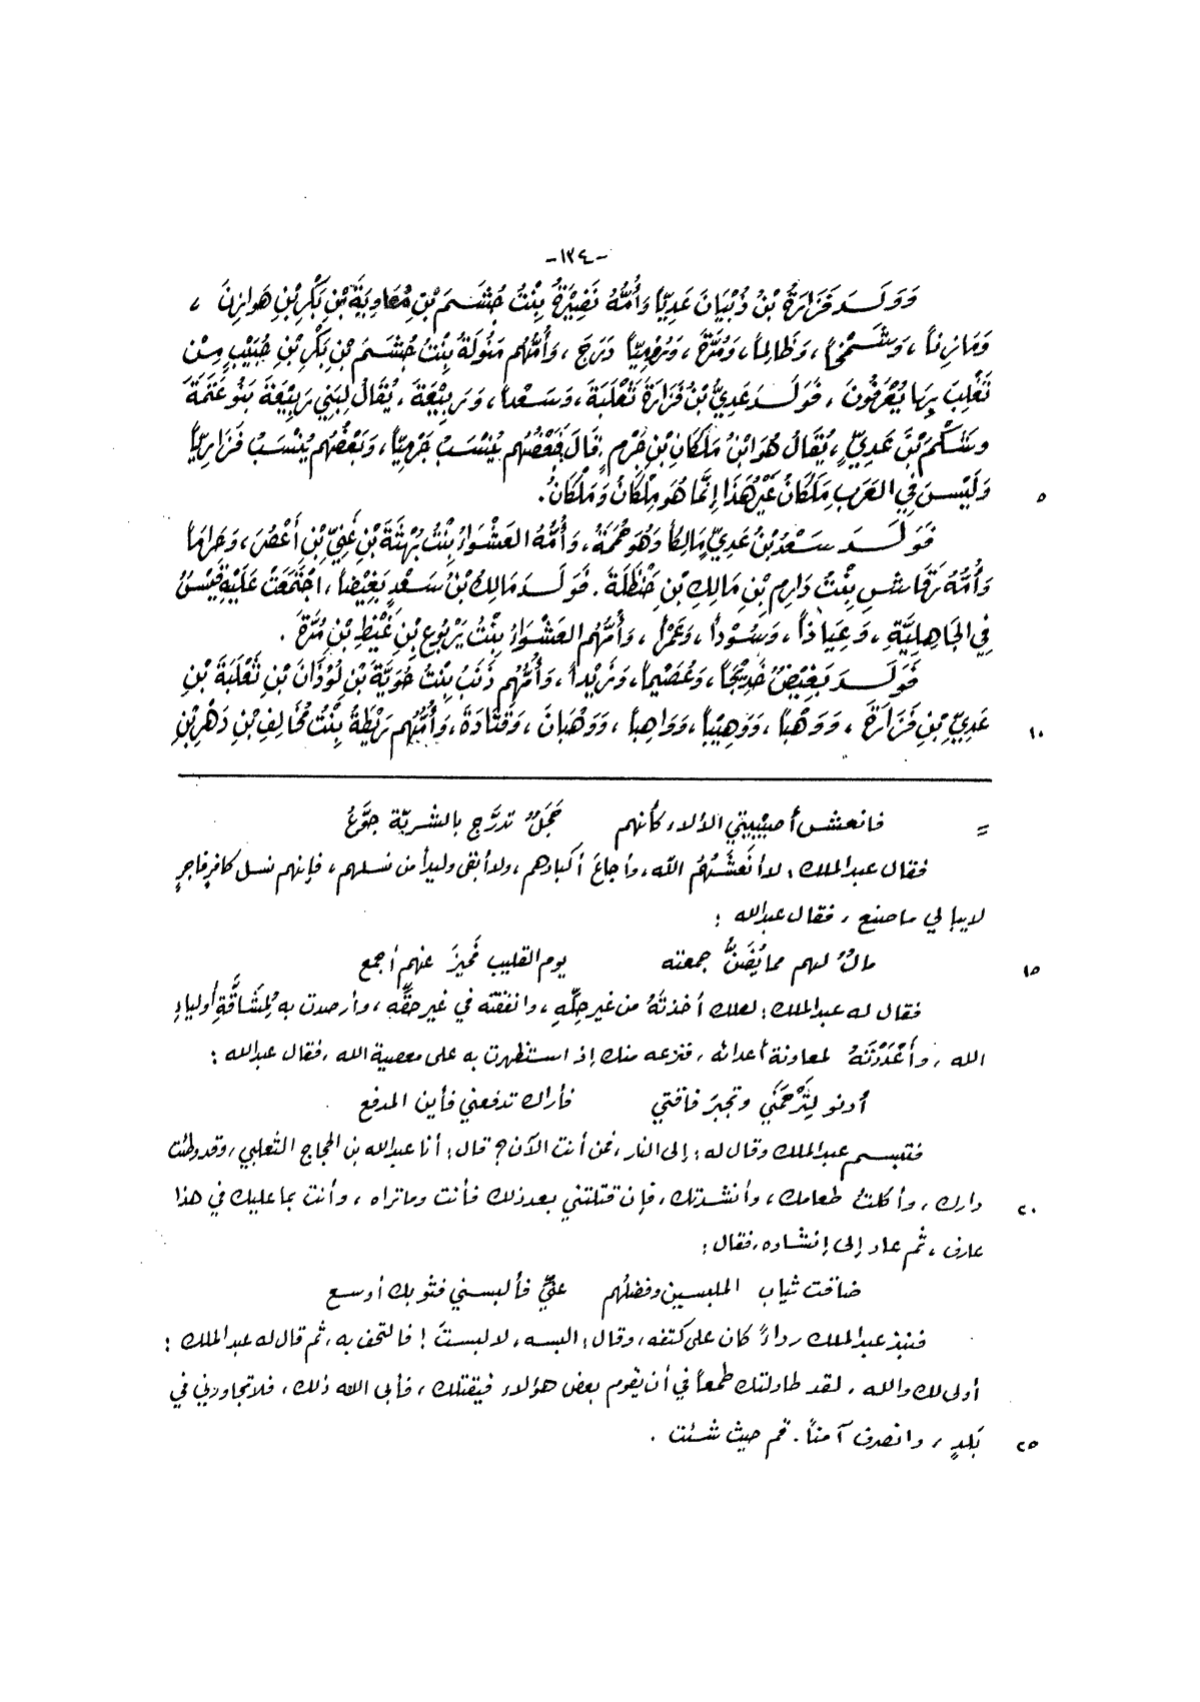 -١٣٤-
وَوَلَدَ فَزَارَةُ بْنُ ذُبْيَانَ عَدِيّاً وَأُمُّهُ نَضِيْرَةُ بِنْتُ جُشَمَ بْنِ مُعَاوِيَةَ بْنِ بَكْرِ بْنِ هَوازِنَ ،
وَمَازِناً ، وَشَمْخاً ، وَظَالِماً ، وَمُرَّةَ ، وَرُومِيّاً دَرَجَ ، وَأُمُّهُم مَنُولَةُ بِنْتُ جُشَمَ بْنِ بَكْرِ بْنِ حُبَيْبٍ مِنْ
تَغْلِبَ بِهَا يُعْرَفُونَ . فَوَلَدَ عَدِيُّ بْنُ فَزَارَةَ ثَعْلَبَةَ ، وَسَعْداً ، وَرَبِيْعَةَ ، يُقَالُ لِبَنِي رَبِيْعَةَ بَنُو عَثَمَةَ
وشَكْمَ بْنَ عَدِيٍّ ، يُقَالُ هُوَ ابْنُ مَلَكَانِ بْنِ جَرْمٍ ; قَالَ بَعْضُهُم يُنْسَبُ جَرْمِيّاً ، وَبَعْضُهُم يُنْسَبُ فَزَارِيّاً
وَلَيْسَ فِي العَرَبِ مَلَكَانُ غَيْرَ هَذَا إِنَّمَا هُوَ مِلْكَانُ وَمَلْكَانُ . ٥
فَوَلَدَ سَعْدُ بْنُ عَدِيٍّ مَالِكاً وَهُوَ حُمَمَةُ ، وَأُمُّهُ العَشْوَاءُ بِنْتُ بُهْثَةَ بْنِ غَنِيِّ بْنِ أَعْصُرَ ، وَحَرَاماً
وَأُمُّهُ رَقَاشِ بِنْتُ دَارِمِ بْنِ مَالِكِ بْنِ حَنْظَلَةَ . فَوَلَدَ مَالِكُ بْنُ سَعْدٍ بَغِيْضاً ، اجْتَمَعَتْ عَلَيْهِ قَيْسُ
فِي الجَاهِلِيَّةِ ، وَعِيَاذاً ، وَسُوْداً ، وَعَمْراً ، وَأُمُّهُم العَشْوَاءُ بِنْتُ يَرْبُوعِ بْنِ غَيْظِ بْنِ مُرَّةَ .
فَوَلَدَ بَغِيْضٌ خَدِيْجاً ، وَعُصَيْماً ، وَزَيْداً ، وَأُمُّهُم ذَنَبُ بِنْتُ حُوَيَّةَ بْنِ لَوْذَانَ بْنِ ثَعْلَبَةَ بْنِ
عَدِيِّ بْنِ فَزَارَةَ ، وَوَهْباً ، وَوَهِيْباً ، وَوَاهِباً ، وَوَهْبَانَ ، وَقَتَادَةَ ، وَأُمُّهُم رَيْطَةُ بِنْتُ مُخَالِفِ بْنِ دَهْرِ بْنِ ١٠
= فانعش أصيبيتي الألاء كأنهم حَجَلٌ تدرَّج بالشربّة جوَّعُ
فقال عبدالملك : لا أَنْعَشَهُمُ اللّه ، وأجاعَ أكبادهم ، ولا أبقى وليداً من نسلهم ، فإنهم نسل كافرٍ فاجرٍ
لايبالي ماصنع ، فقال عبدالله :
مالٌ لهم مما يُضَنُّ جمعته يوم القليب فَحيزَ عنهم أجمع ١٥
فقال له عبدالملك : لعلك أخذتَهُ من غير حِلّهِ ، وانفقته في غير حقّه ، وأرصدت به لِمُشَاقَّةِ أولياءِ
الله ، وأعْدَدْتَهُ لمعاونة أعدائه ، فنزعه منك إذ استظهرت به على معصية الله ، فقال عبدالله :
أدنو لِتَرْحَمَني وتجبرَ فاقتي فأراك تدفعني فأين المدفع
فتبسم عبدالملك وقال له : إلى النار ، فمن أنت الآن ؟ قال : أنا عبدالله بن الحجاج الثعلبي ، وقد وطئت
دارك ، وأكلتُ طعامك ، وأنشدتك ، فإن قتلتني بعد ذلك فأنت وماتراه ، وأنت بما عليك في هذا ٢٠
عارف ، ثم عاد إلى إنشاده ، فقال :
ضاقت ثياب الملبسين وفضلُهم عنّي فألبسني فثوبك أوسع
فنبذ عبدالملك رداءً كان على كتفه ، وقال : البسه ، لالبستَ ! فالتحف به ، ثم قال له عبدالملك :
أولى لك والله ، لقد طاولتك طمعاً في أن يقوم بعض هؤلاء فيقتلك ، فأبى الله ذلك ، فلاتجاورني في
بَلدٍ ، وانصرف آمناً . قم حيث شئت . ٢٥